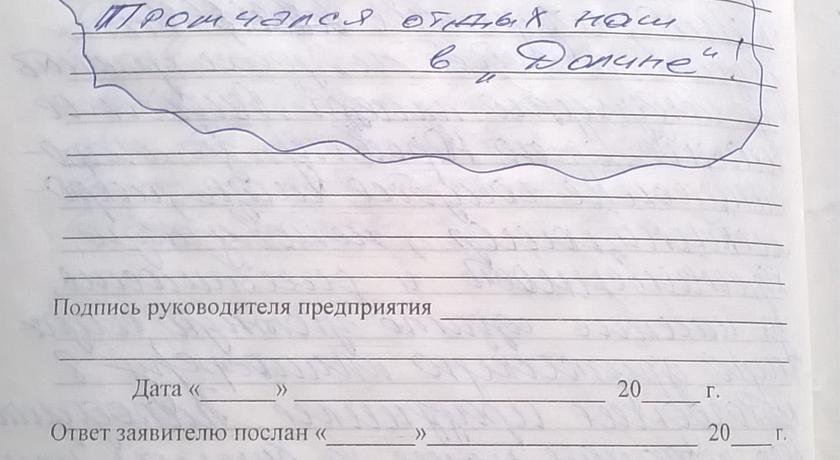 Промчался отдых наш
в „Долине“!
Подпись руководителя предприятия ____________
Дата «______» ____________ 20____ г.
Ответ заявителю послан «______»____________ 20___г.